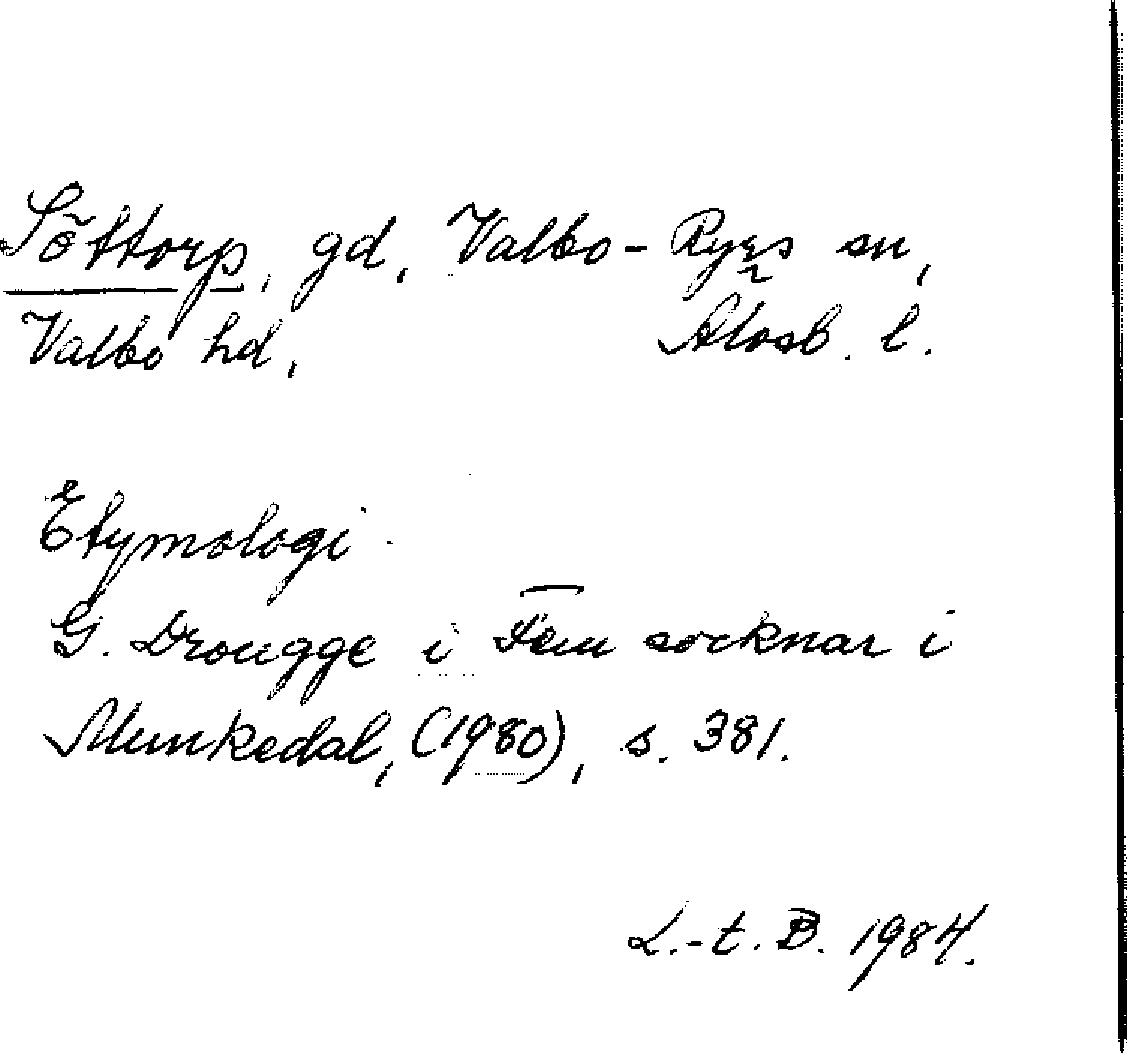 Söttorp, gd, Valbo-Ryrs sn,
Valbo hd, Älvsb. l.
Etymologi
G. Drougge i Fem socknar i
Munkedal, (1980), s. 381.
L.-t. B. 1984.